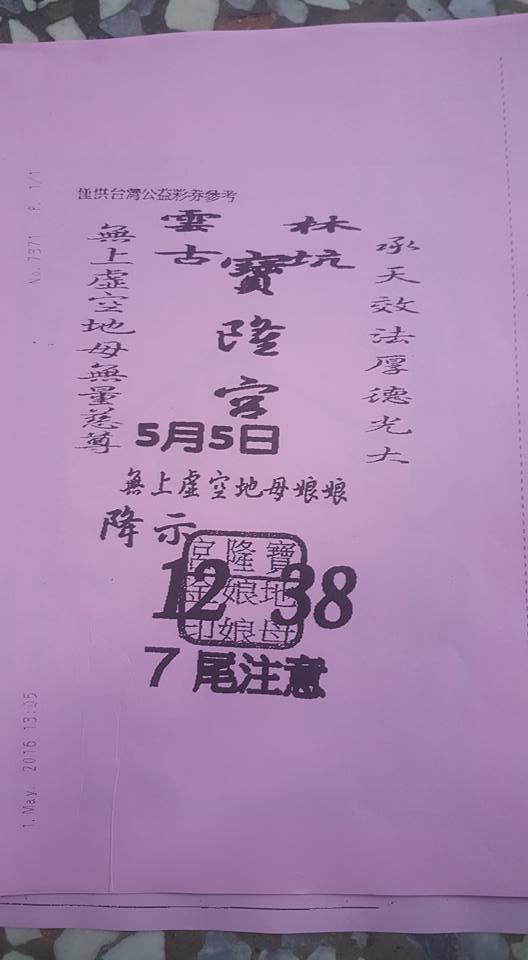 No.7371 P. 1/1
僅供台灣公益彩券參考
雲林
古坑
寶隆宮
承天效法厚德光大
無上虛空地母無量慈尊
5月5日
無上虛空地母娘娘
降示
寶隆宮
地娘金
母娘印
12 38
7尾注意
1. May. 2016 13:05